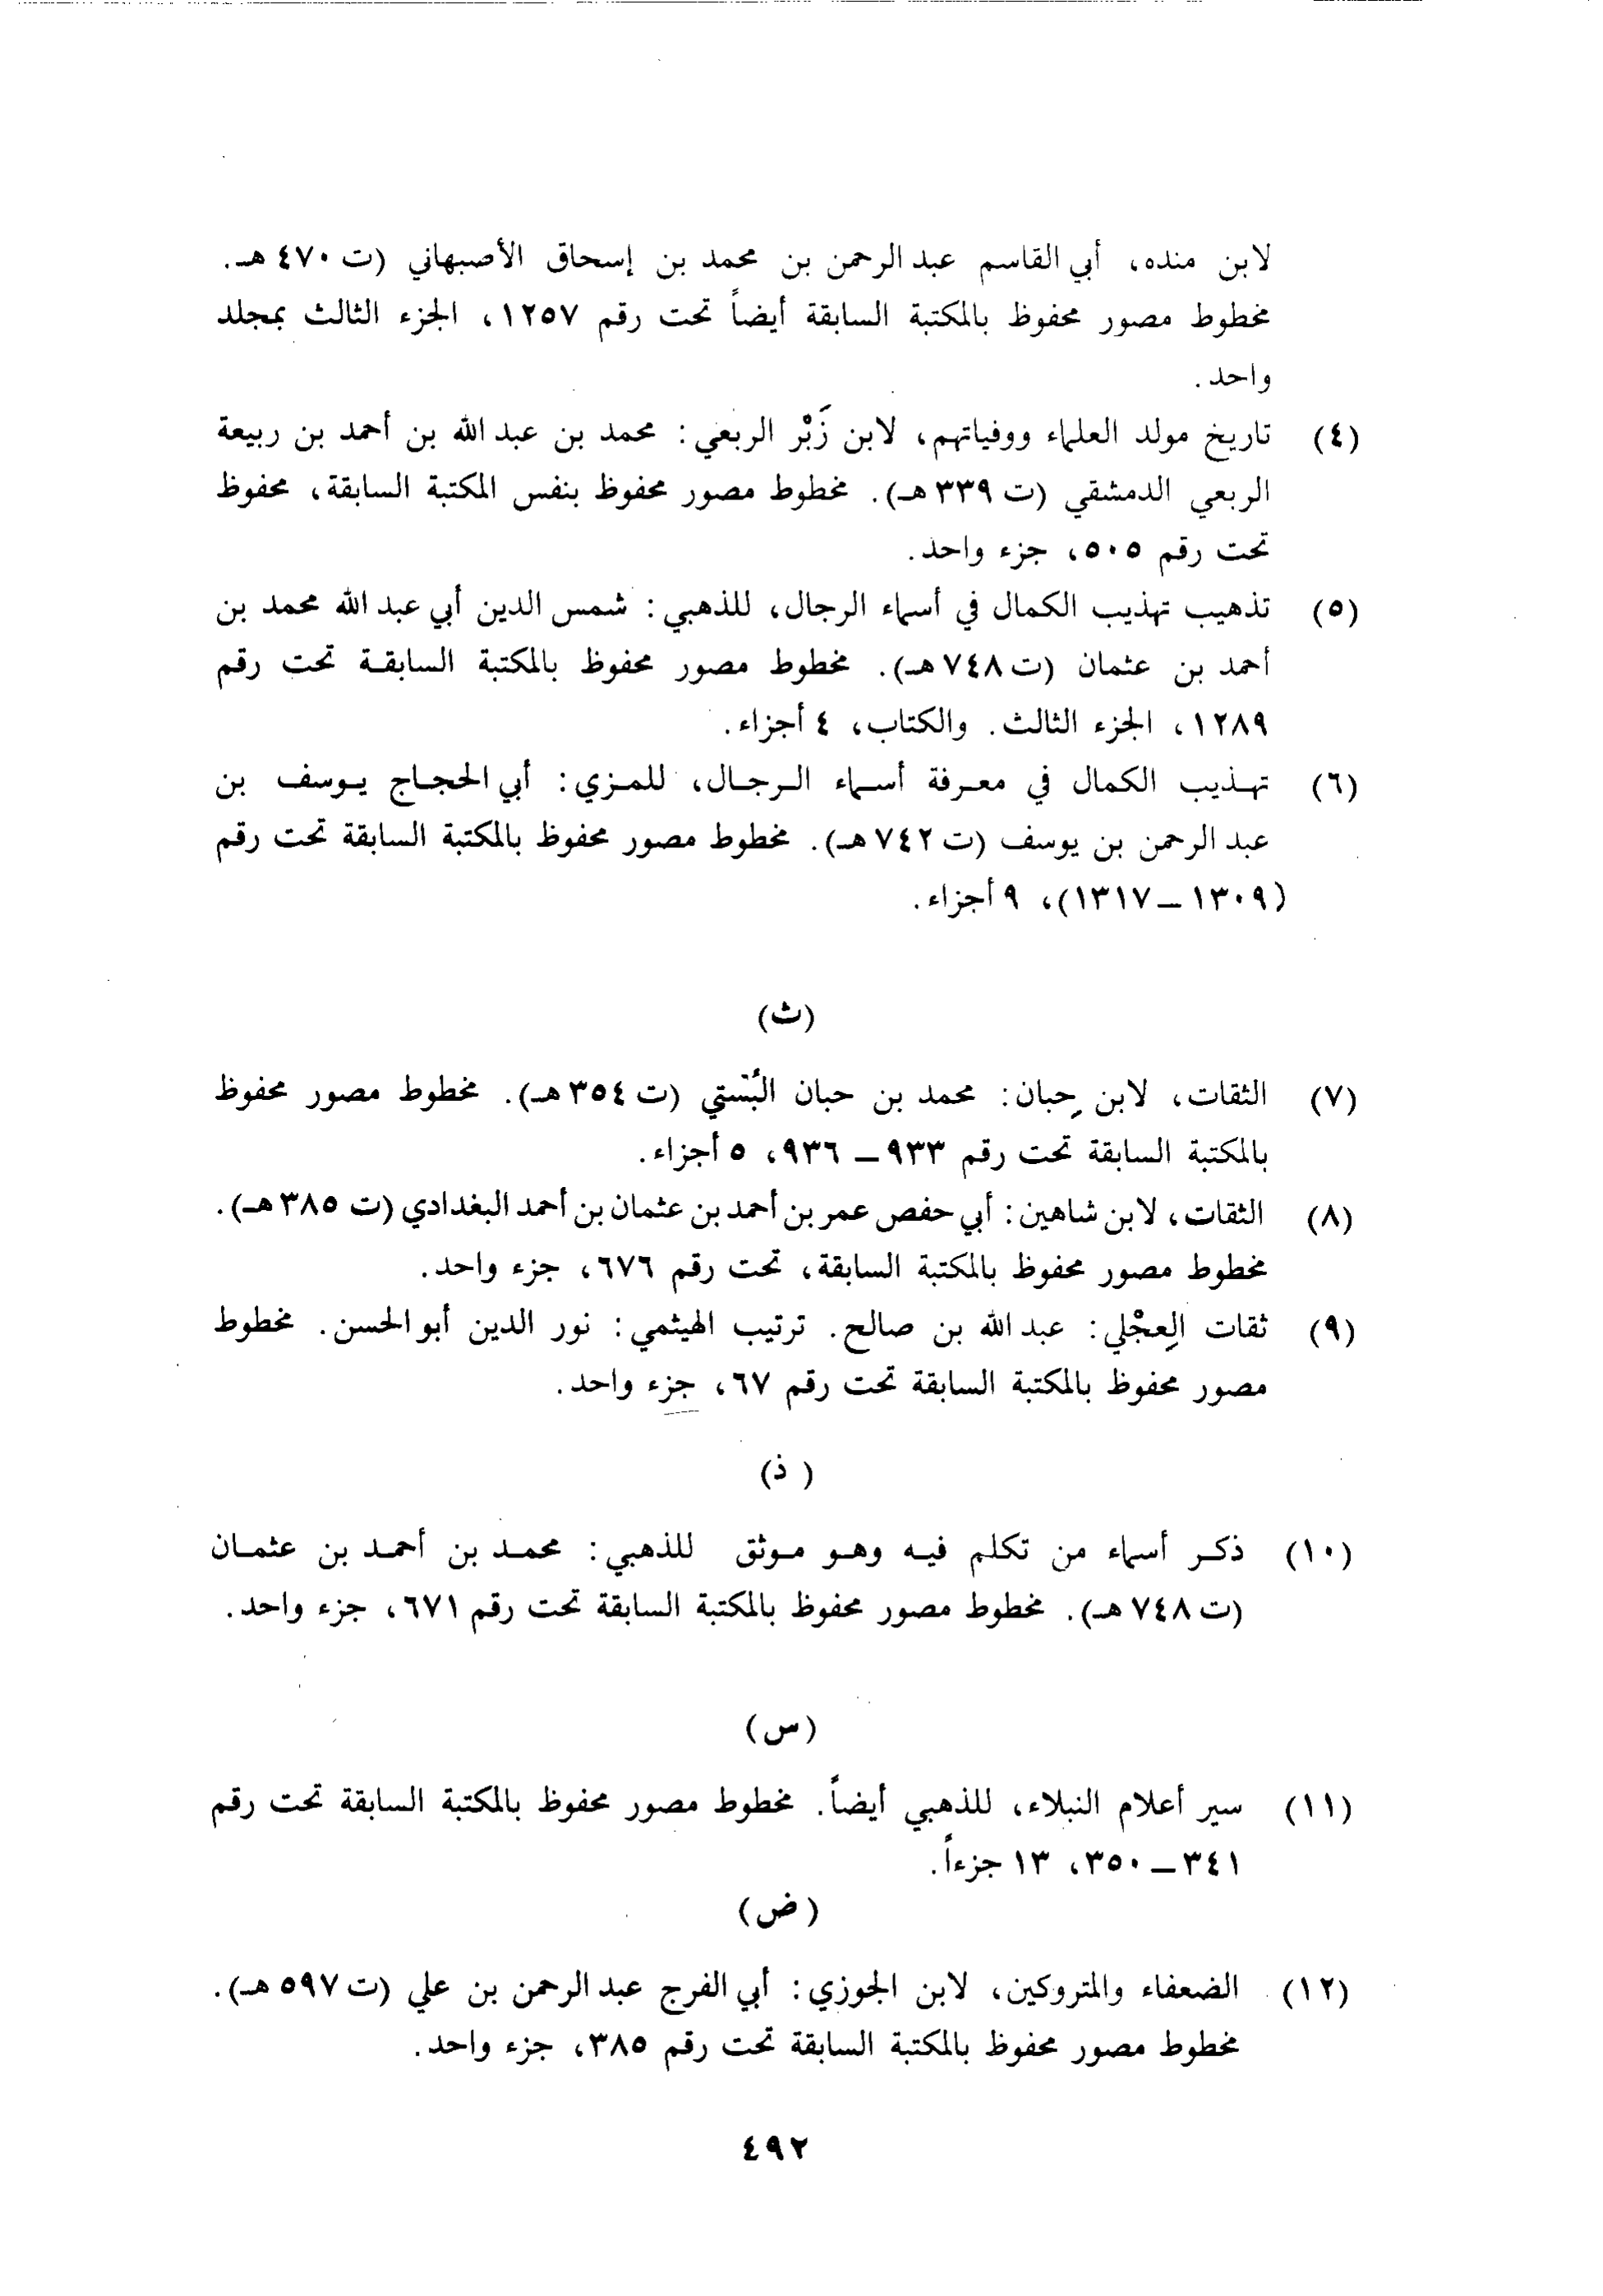 لابن منده، أبي القاسم عبد الرحمن بن محمد بن إسحاق الأصبهاني (ت ٤٧٠ هـ.
مخطوط مصور محفوظ بالمكتبة السابقة أيضاً تحت رقم ١٢٥٧، الجزء الثالث بمجلد
واحد.
(٤) تاريخ مولد العلماء ووفياتهم، لابن زَبْر الربعي: محمد بن عبد الله بن أحمد بن ربيعة
الربعي الدمشقي (ت ٣٣٩ هـ). مخطوط مصور محفوظ بنفس المكتبة السابقة، محفوظ
تحت رقم ٥٠٥، جزء واحد.
(٥) تذهيب تهذيب الكمال في أسماء الرجال، للذهبي: شمس الدين أبي عبد الله محمد بن
أحمد بن عثمان (ت ٧٤٨ هـ). مخطوط مصور محفوظ بالمكتبة السابقة تحت رقم
١٢٨٩، الجزء الثالث. والكتاب، ٤ أجزاء.
(٦) تهذيب الكمال في معرفة أسماء الرجال، للمزي: أبي الحجاج يوسف بن
عبد الرحمن بن يوسف (ت ٧٤٢ هـ). مخطوط مصور محفوظ بالمكتبة السابقة تحت رقم
(١٣٠٩ – ١٣١٧)، ٩ أجزاء.
(ث)
(٧) الثقات، لابن حِبان: محمد بن حبان البُسْتي (ت ٣٥٤ هـ). مخطوط مصور محفوظ
بالمكتبة السابقة تحت رقم ٩٣٣ – ٩٣٦، ٥ أجزاء.
(٨) الثقات، لابن شاهين: أبي حفص عمر بن أحمد بن عثمان بن أحمد البغدادي (ت ٣٨٥ هـ).
مخطوط مصور محفوظ بالمكتبة السابقة، تحت رقم ٦٧٦، جزء واحد.
(٩) ثقات العِجْلي: عبد الله بن صالح. ترتيب الهيثمي: نور الدين أبو الحسن. مخطوط
مصور محفوظ بالمكتبة السابقة تحت رقم ٦٧، جزء واحد.
(ذ)
(١٠) ذكر أسماء من تكلم فيه وهو موثق للذهبي: محمد بن أحمد بن عثمان
(ت ٧٤٨ هـ). مخطوط مصور محفوظ بالمكتبة السابقة تحت رقم ٦٧١، جزء واحد.
(س)
(١١) سير أعلام النبلاء، للذهبي أيضاً. مخطوط مصور محفوظ بالمكتبة السابقة تحت رقم
٣٤١ – ٣٥٠، ١٣ جزءاً.
(ض)
(١٢) الضعفاء والمتروكين، لابن الجوزي: أبي الفرج عبد الرحمن بن علي (ت ٥٩٧ هـ).
مخطوط مصور محفوظ بالمكتبة السابقة تحت رقم ٣٨٥، جزء واحد.
٤٩٢